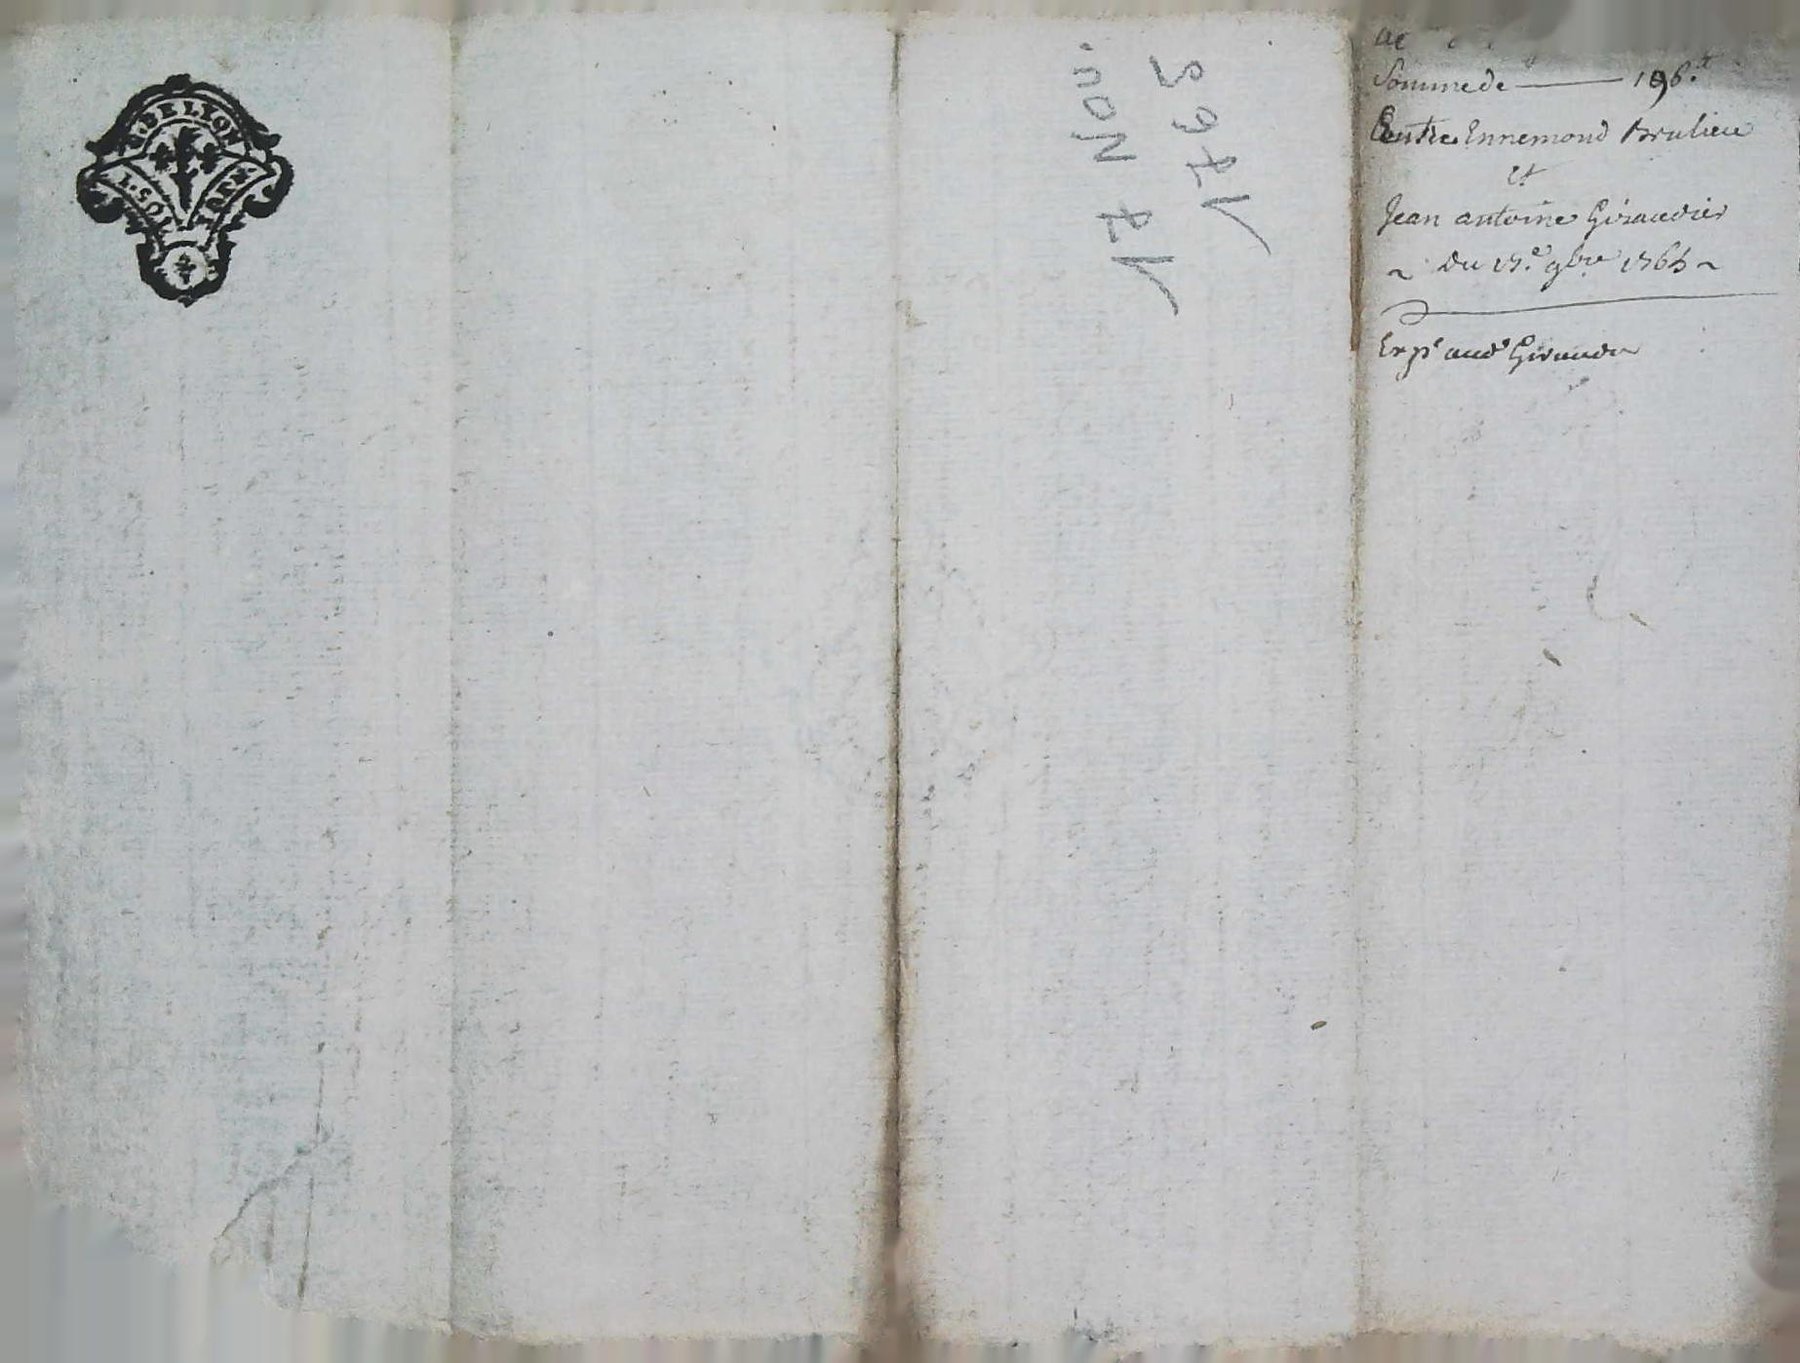 G. DE LYON
1. SOL
17 Nov.
1765
Somme de — 196.tt
Entre Ennemond Brulieu
et
Jean antoine Giraudier
~ Du 17.e 9bre 1765 ~
Exp.e aud.